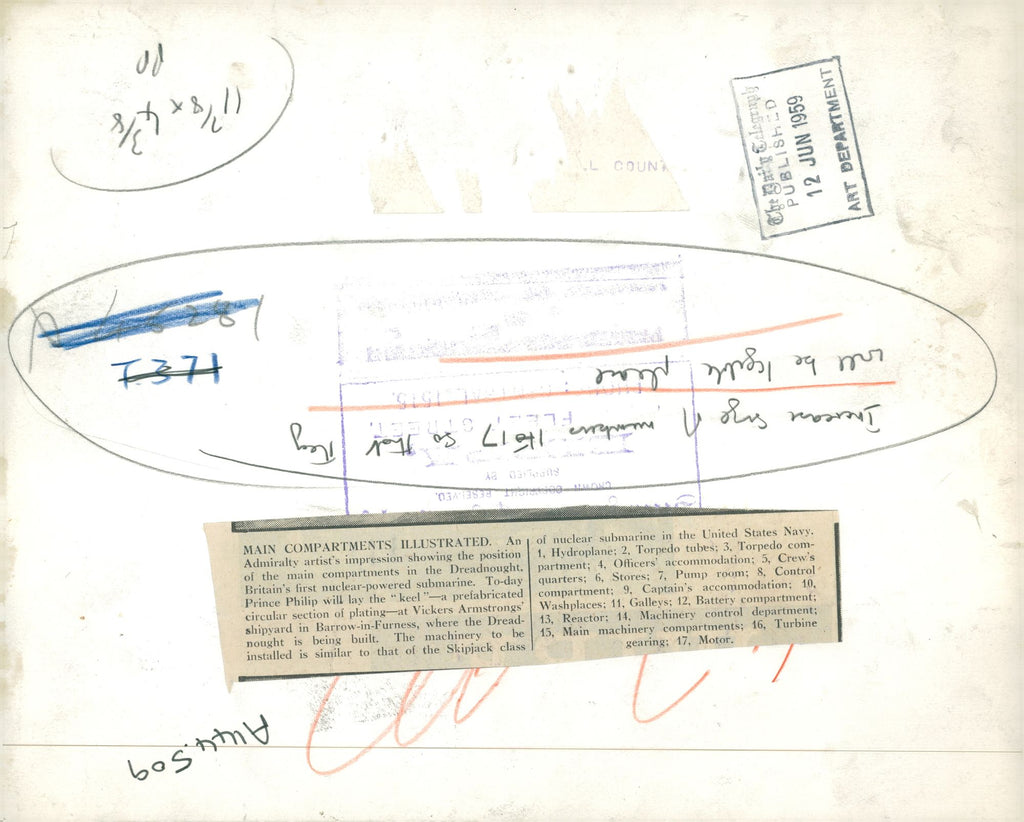 11 7/8 x 4 3/8
The Daily Telegraph
PUBLISHED
12 JUN 1959
ART DEPARTMENT
L COUN
T371
Increase size of numbers 1 to 17 so that they
will be legible please
FLEET STREET
SUPPLIED BY
CROWN COPYRIGHT RESERVED.
MAIN COMPARTMENTS ILLUSTRATED. An
Admiralty artist's impression showing the position
of the main compartments in the Dreadnought,
Britain's first nuclear-powered submarine. To-day
Prince Philip will lay the "keel"—a prefabricated
circular section of plating—at Vickers Armstrongs'
shipyard in Barrow-in-Furness, where the Dread-
nought is being built. The machinery to be
installed is similar to that of the Skipjack class
of nuclear submarine in the United States Navy.
1, Hydroplane; 2, Torpedo tubes; 3, Torpedo com-
partment; 4, Officers' accommodation; 5, Crew's
quarters; 6, Stores; 7, Pump room; 8, Control
compartment; 9, Captain's accommodation; 10,
Washplaces; 11, Galleys; 12, Battery compartment;
13, Reactor; 14, Machinery control department;
15, Main machinery compartments; 16, Turbine
gearing; 17, Motor.
A144.509